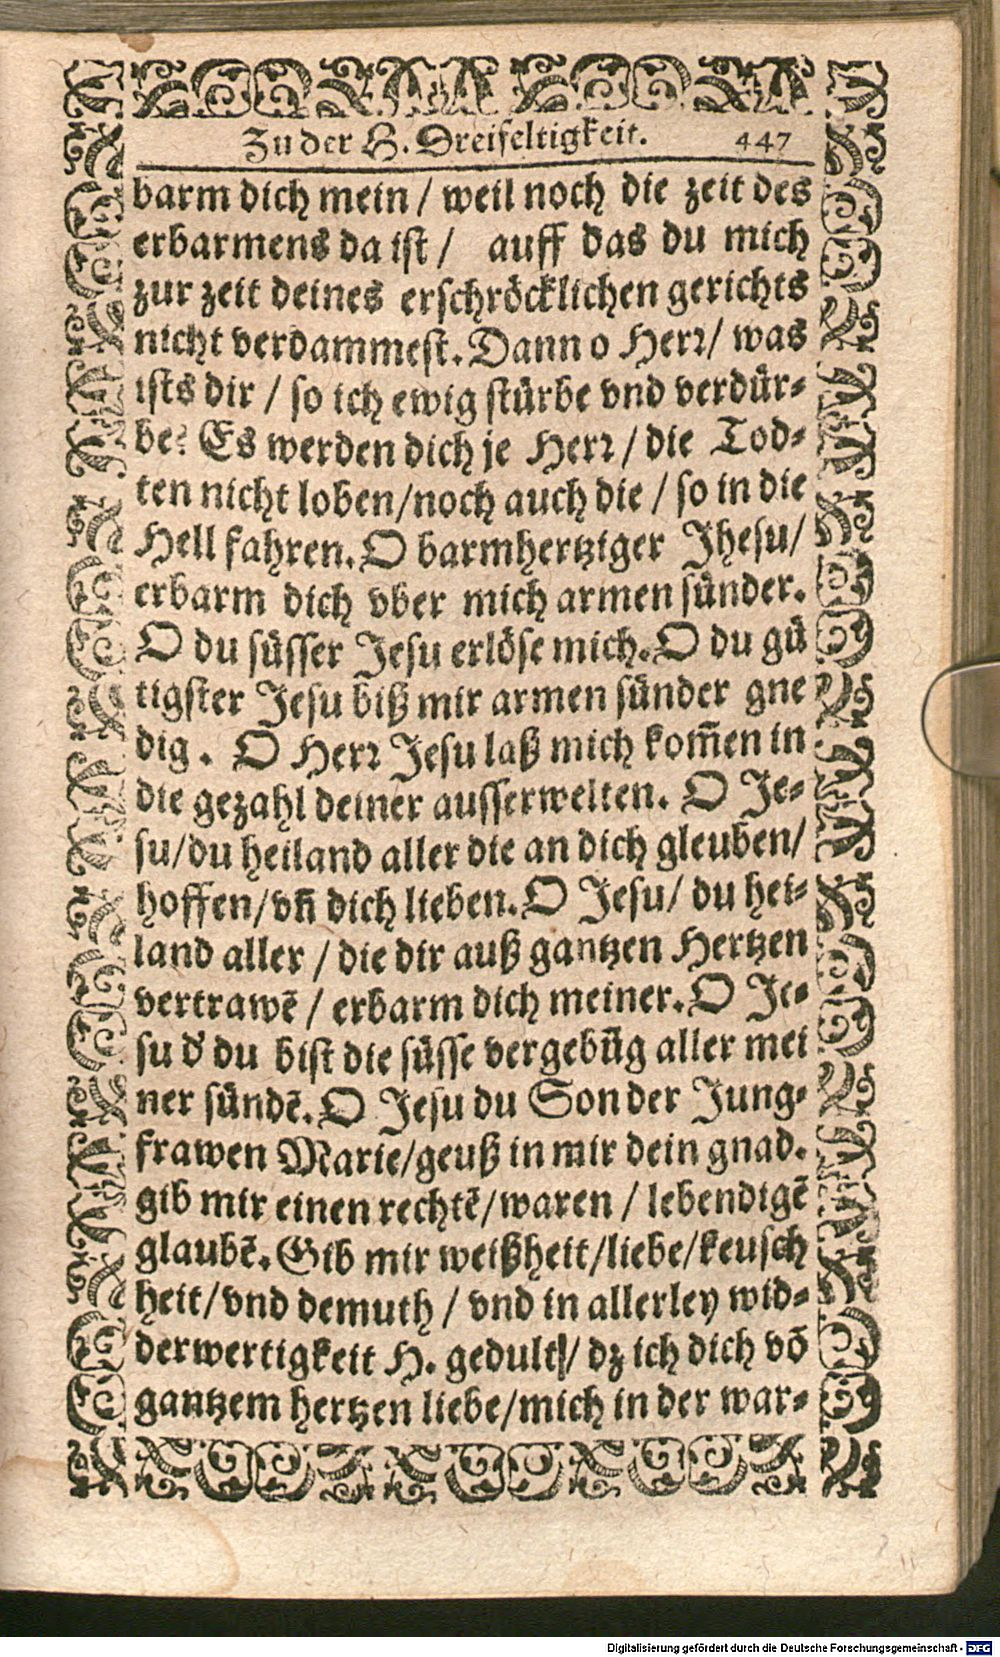 Zu der H. Dreifeltigkeit. 447
barm dich mein / weil noch die zeit des
erbarmens da ist / auff das du mich
zur zeit deines erschröcklichen gerichts
nicht verdammest. Dann o Herr/ was
ists dir / so ich ewig stürbe vnd verdür-
be? Es werden dich je Herr / die Tod-
ten nicht loben/noch auch die / so in die
Hell fahren. O barmhertziger Jhesu/
erbarm dich vber mich armen sünder.
O du süsser Jesu erlöse mich. O du gü
tigster Jesu biß mir armen sünder gne
dig. O Herr Jesu laß mich kom̃en in
die gezahl deiner ausserwelten. O Je-
su/du heiland aller die an dich gleuben/
hoffen/vñ dich lieben. O Jesu/ du hei-
land aller / die dir auß gantzen Hertzen
vertrawẽ / erbarm dich meiner. O Je-
su d' du bist die süsse vergebũg aller mei
ner sündẽ. O Jesu du Son der Jung-
frawen Marie/geuß in mir dein gnad.
gib mir einen rechtẽ/waren / lebendigẽ
glaubẽ. Gib mir weißheit/liebe/keusch
heit/vnd demuth / vnd in allerley wid-
derwertigkeit H. gedult/ dz ich dich võ
gantzem hertzen liebe/mich in der war-
Digitalisierung gefördert durch die Deutsche Forschungsgemeinschaft - DFG